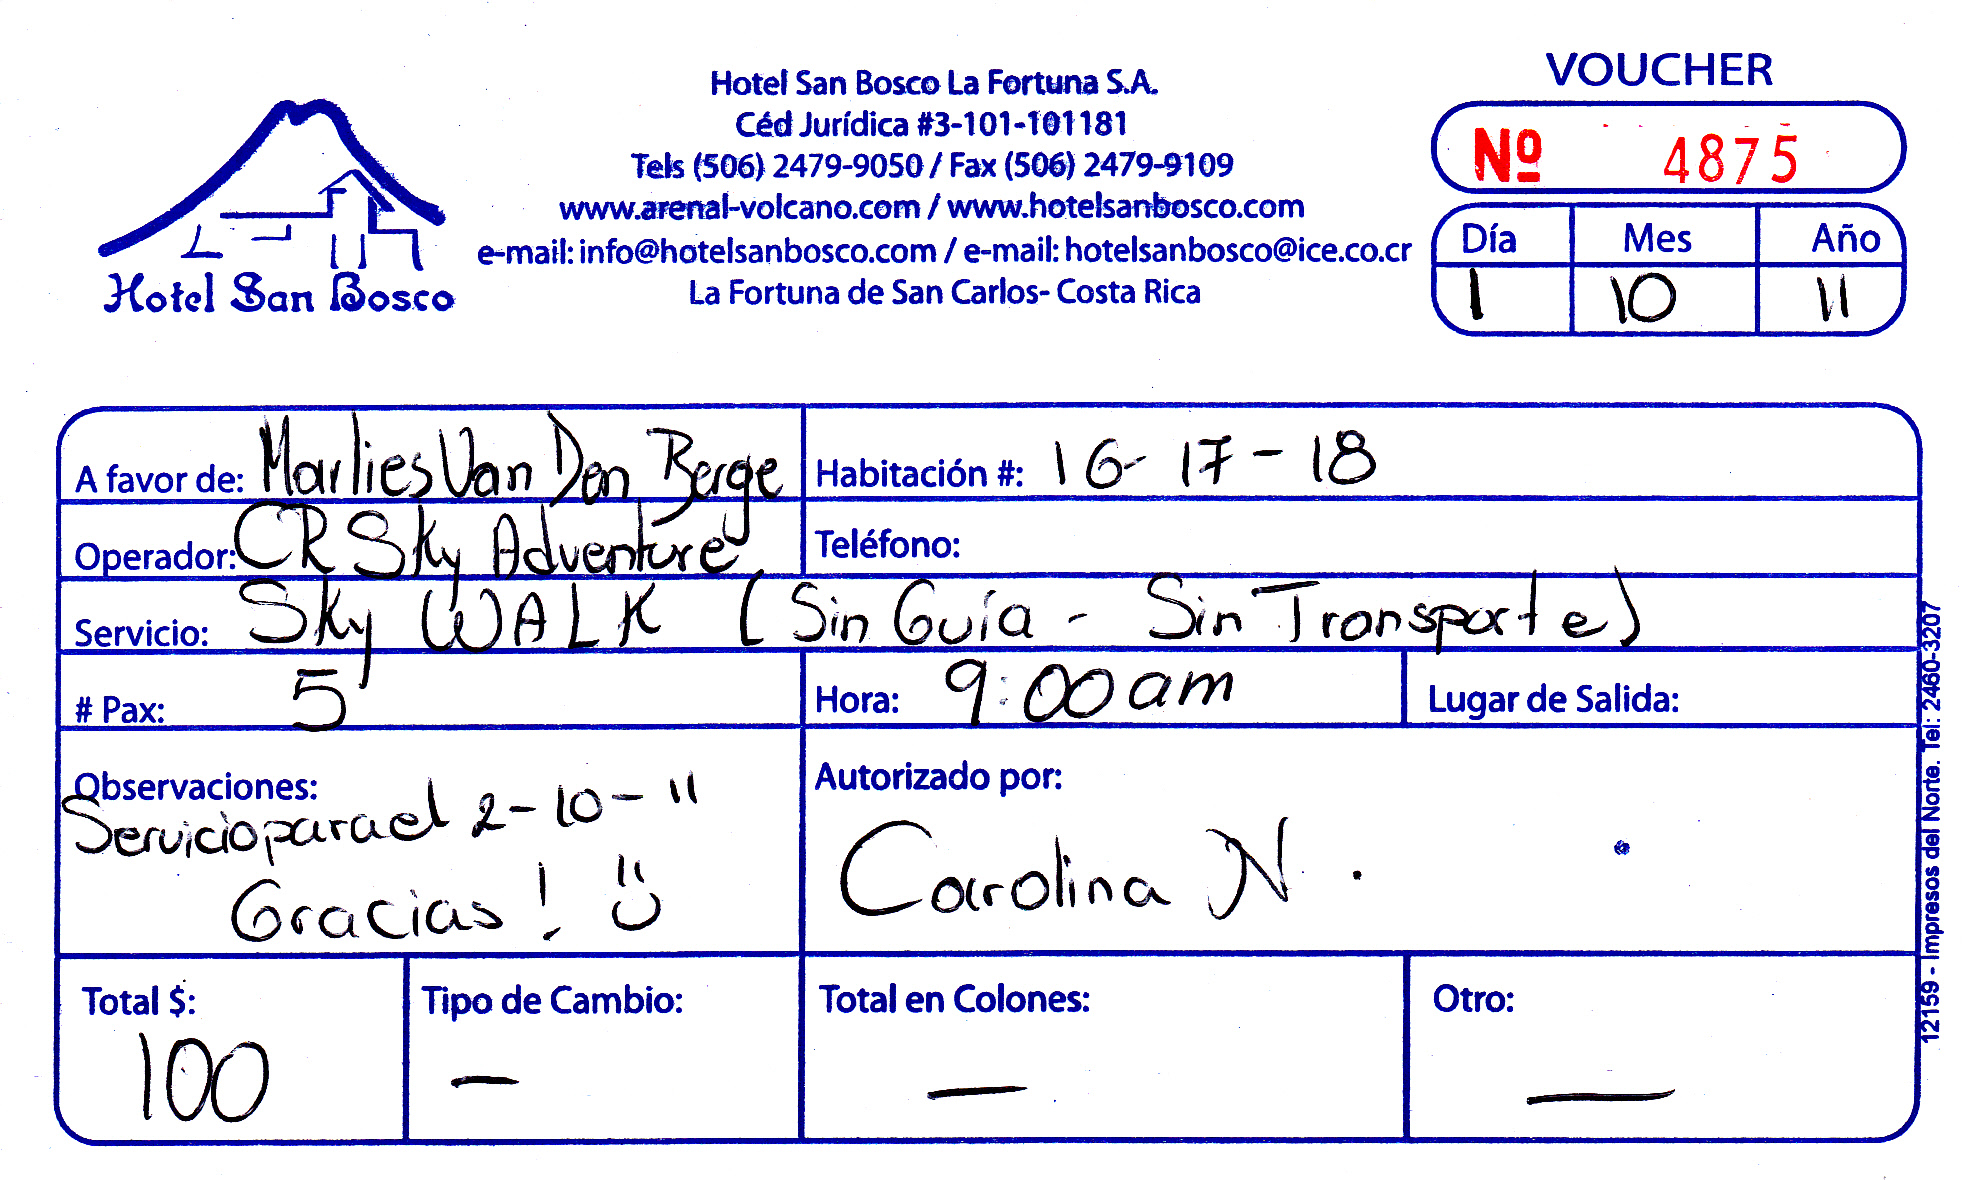 Hotel San Bosco
Hotel San Bosco La Fortuna S.A.
Céd Jurídica #3-101-101181
Tels (506) 2479-9050 / Fax (506) 2479-9109
www.arenal-volcano.com / www.hotelsanbosco.com
e-mail: info@hotelsanbosco.com / e-mail: hotelsanbosco@ice.co.cr
La Fortuna de San Carlos- Costa Rica
VOUCHER
Nº 4875
Día Mes Año
1 10 11
A favor de: Marlies Van Den Berge Habitación #: 16-17-18
Operador: CR Sky Adventure Teléfono:
Servicio: Sky WALK (Sin Guía - Sin Transporte)
# Pax: 5 Hora: 9:00 am Lugar de Salida:
Observaciones:
Servicio para el 2-10-11
Gracias!
Autorizado por:
Carolina N.
Total $: Tipo de Cambio: Total en Colones: Otro:
100 — — —
12159 - Impresos del Norte. Tel: 2460-3207